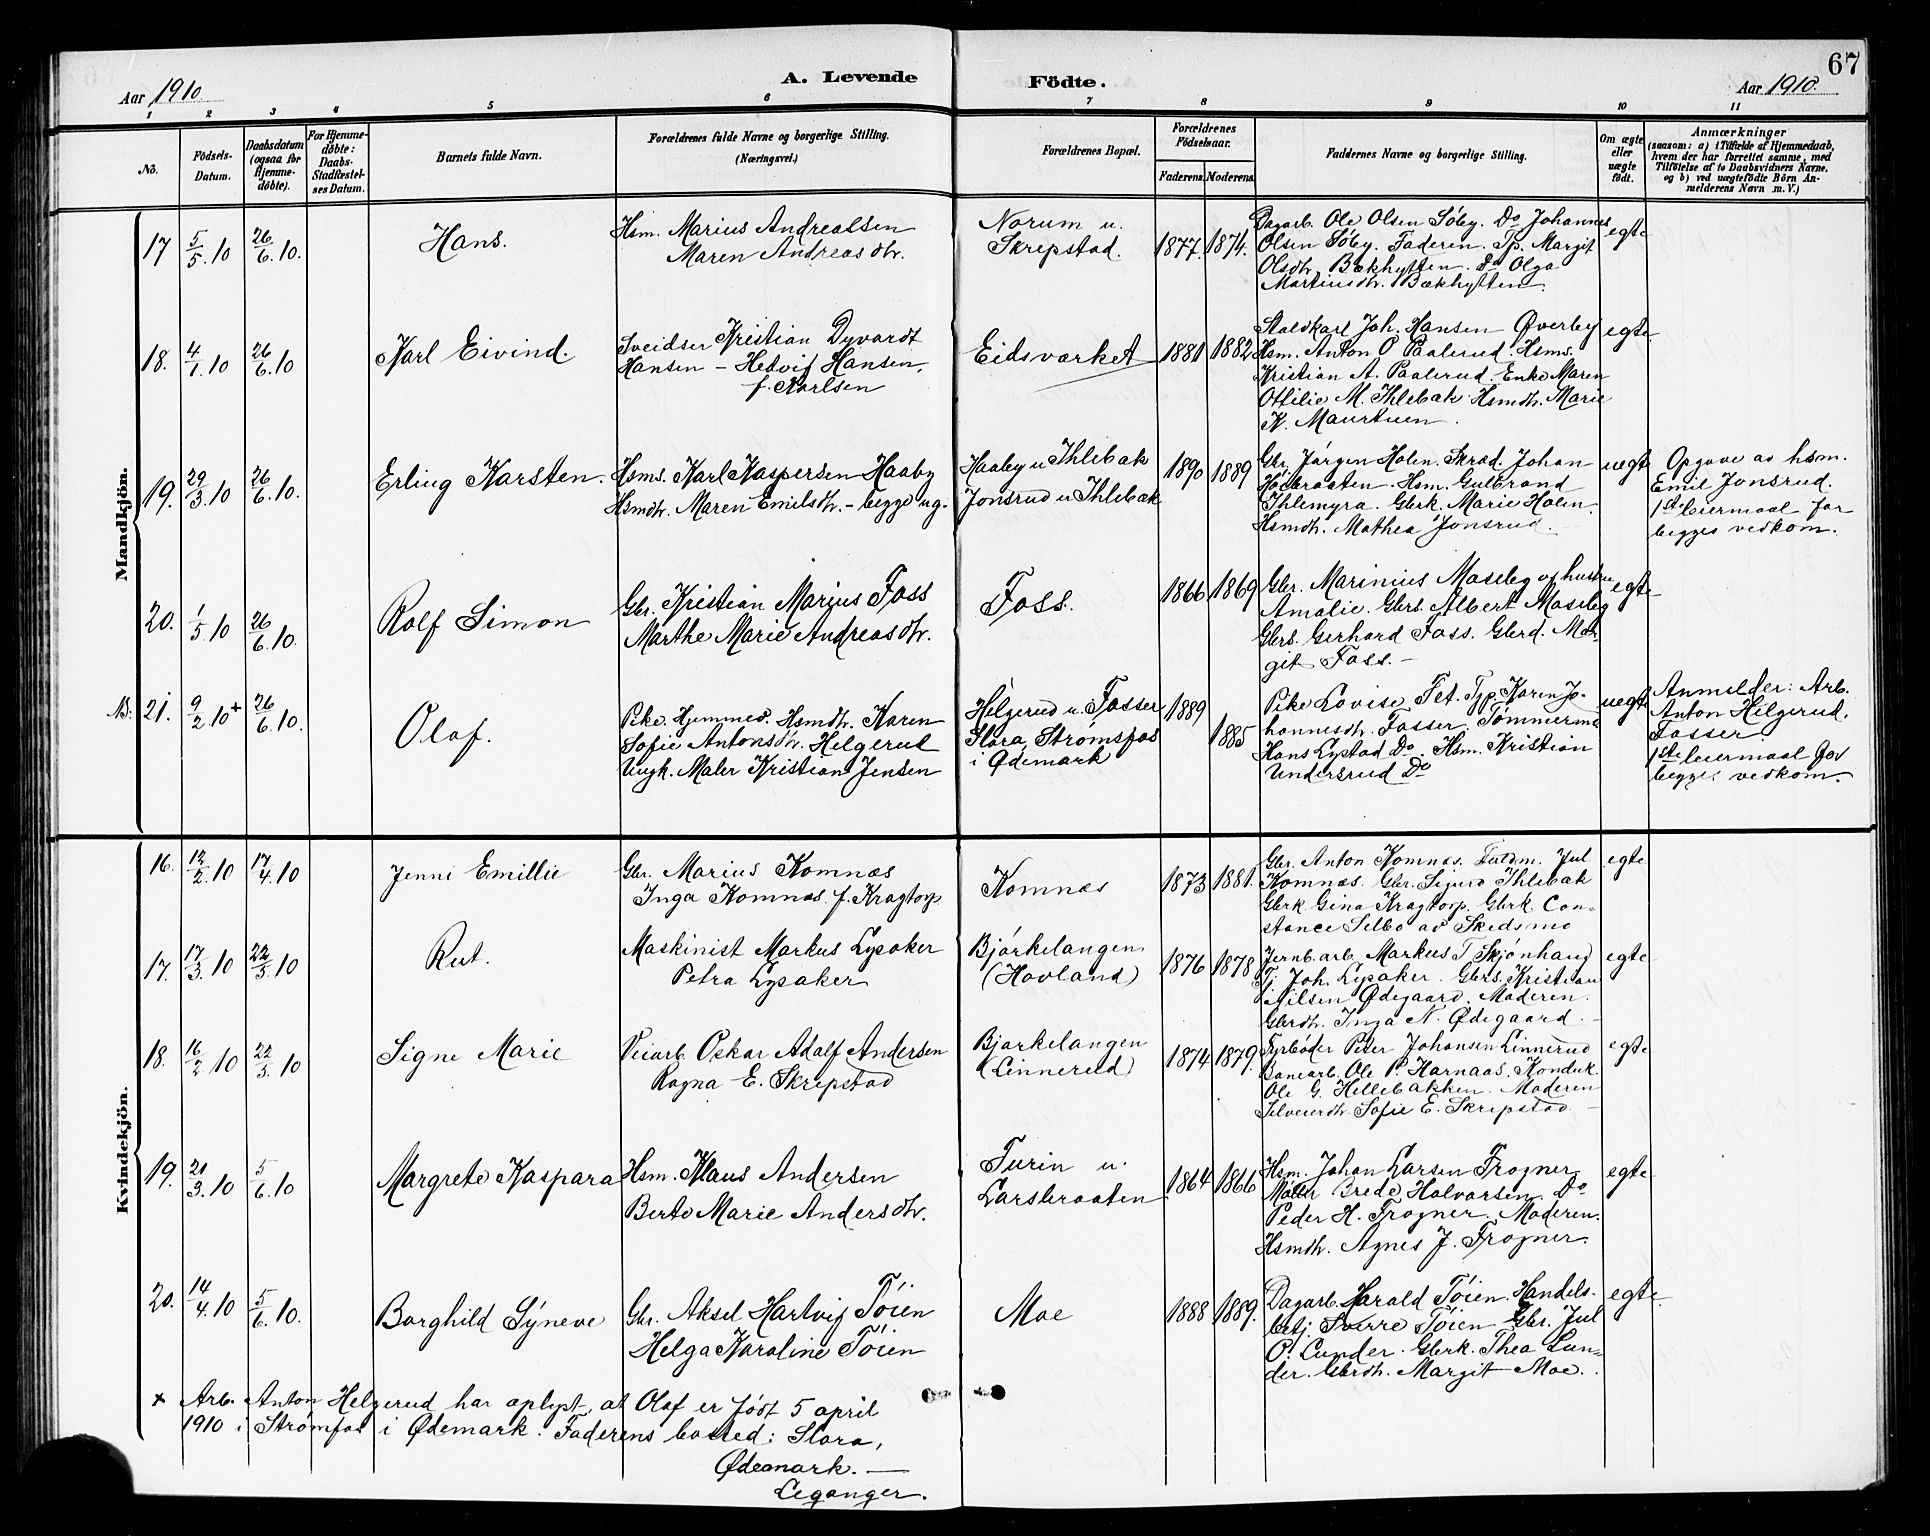 67
A. Levende Födte.
Aar 1910.
Aar 1910.
1 2 3 4 5 6 7 8 9 10 11
No.
Födsels-Datum.
Daabsdatum (ogsaa for Hjemme-döbte).
For Hjemme-döbte: Daabs-Stadfæstel-ses Datum.
Barnets fulde Navn.
Forældrenes fulde Navne og borgerlige Stilling.
(Næringsvei.)
Forældrenes Bopæl.
Forældrenes Födselsaar.
Faderens. Moderens.
Faddernes Navne og borgerlige Stilling.
Om ægte eller uægte födt.
Anmærkninger
(saasom: a) i Tilfælde af Hjemmedaab,
hvem der har forrettet samme, med
Tilföielse af to Daabsvidners Navne,
og b) ved uægtefödte Börn An-
melderens Navn m. V.)
Mandkjön.
17 5/5.10 26/6.10. Hans.
Hsm. Marius Andreassen
Maren Andreasdtr.
Norum u.
Skrepstad.
1877. 1874.
Dagarb. Ole Olsen Søby. Do Johannes
Olsen Søby. Faderen. Tp. Margit
Olsdtr. Bækhytten. Do Olga
Martinsdtr. Bækhytten.
egte
18. 4/1.10 26/6.10 Karl Eivind.
Sveidser Kristian Dyvardt
Hansen – Hedvig Hansen,
f. Karlsen
Eidsværket
1881 1882
Staldkarl Joh. Hansen Øverby
Hsm. Anton O Paalerud. Hsms.
Kristian A. Paalerud. Enke Maren
Ottilie M. Ihlebæk. Hsmdtr. Marie
K. Maurtuen.
egte
19. 29/3.10 26/6.10. Erling Karsten.
Hsms. Karl Kaspersen Haaby
Hsmdtr. Maren Emilsdtr. – begge ug.
Haaby u Ihlebæk
Jonsrud u Ihlebæk
1890 1889
Gbr. Jørgen Holen. Skræd. Johan
Høibraaten. Hsm. Gulbrand
Ihlemyra. Gbrk. Marie Holen.
Hsmdtr. Mathea Jonsrud.
uegte
Opgave av hsm.
Emil Jonsrud.
1ste leiermaal for
begges vedkom.
20. 1/5.10 26/6.10. Rolf Simon
Gbr. Kristian Marius Foss
Marthe Marie Andreasdtr.
Foss.
1866 1869
Gbr. Marinius Moseby og hustru
Amalie. Gbrs. Albert Moseby
Gbrs. Gerhard Foss. Gbrd. Mar-
git Foss. –
egte
NB. 21. 9/2.10+ 26/6.10. Olaf.
Pike. Hjemmev. Hsmdtr. Karen
Sofie Antonsdtr. Helgerud
Ungk. Maler Kristian Jensen
Helgerud u. Fosser
Slora, Strømsfos
i Ødemark
1889 1885
Pike Lovise Fet. Tjp. Karen Jo-
hannesdtr. Fosser. Tømmerm
Hans Lystad Do. Hsm. Kristian
Undersrud Do
uegte
Anmelder: Arb.
Anton Helgerud,
Fosser
1ste leiermaal for
begges vedkom.
Kvindekjön.
16. 12/2.10 17/4.10 Jenni Emillie
Gbr. Marius Komnæs
Inga Komnæs f. Kragtorp
Komnæs
1873 1881.
Gbr. Anton Komnæs. Fuldm. Jul
Komnæs. Gbr. Sigurd Ihlebæk
Gbrk. Gina Kragtorp. Gbrk. Con-
stance Selbo av Skedsmo
egte
17. 17/3.10 22/5.10 Rut.
Maskinist Markus Lysaker
Petra Lysaker
Bjørkelangen
(Hovland)
1876 1878
Jernb.arb. Markus T Skjønhaug
Tj. Joh. Lysaker. Gbrs. Kristian
Nilsen Ødegaard. Moderen.
Gbrdtr. Inga N. Ødegaard. –
egte
18. 16/2.10 22/5.10 Signe Marie
Veiarb. Oskar Adolf Andersen
Ragna E. Skrepstad
Bjørkelangen
(Linnerud)
1874 1879.
Fyrbøder Peter Johansen Linnerud
Banearb. Ole P. Harnaas. Konduk.
Ole G. Hellebakken. Moderen
Selveierdtr. Sofie E. Skrepstad. –
egte
19. 20/3.10 5/6.10 Margrete Kaspara
Hsm. Klaus Andersen
Berte Marie Andersdtr.
Turin u.
Larsbraaten
1864 1866
Hsm. Johan Larsen Frogner
Møller Brede Halvorsen Do
Peder H. Frogner. Moderen.
Hsmdtr. Agnes J. Frogner.
egte
20. 14/4.10 5/6.10. Borghild Synøve
Gbr. Aksel Hartvig Tøien
Helga Karoline Tøien
Moe
1888 1889.
Dagarb. Harald Tøien. Handels-
betj. Sverre Tøien. Gbr. Jul
O. Lunder. Gbrk. Thea Lun-
der. Gbrdtr. Margit Moe.
egte
x Arb. Anton Helgerud har oplyst, at Olaf er født 5 april
1910 i Strømsfos i Ødemark. Faderens bosted: Slora,
Ødemark. –
Leganger.